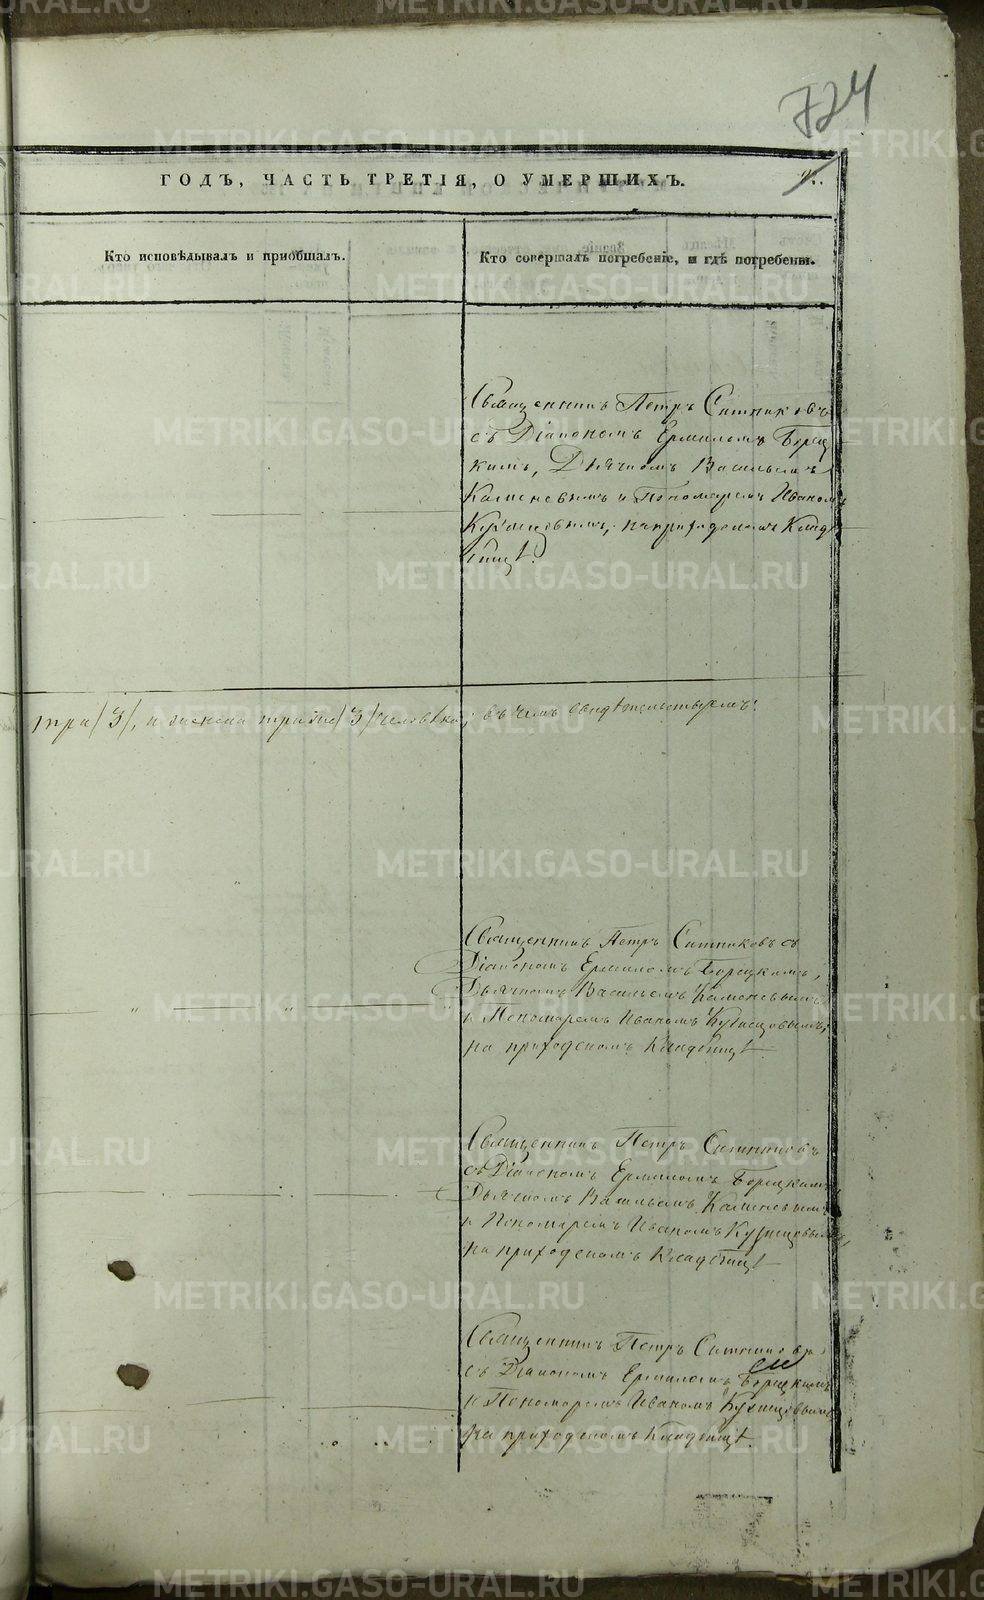 724
ГОДЪ, ЧАСТЬ ТРЕТІЯ, О УМЕРШИХЪ.
Кто исповѣдывалъ и пріобщалъ.
Кто совершалъ погребеніе, и гдѣ погребены.
Священникъ Петръ Ситниковъ
съ Діакономъ Ермиломъ Борец
кимъ, Дьячкомъ Васильемъ
Каменевымъ и Пономаремъ Иваном
Кузнецовымъ, на приходскомъ Клад
бищѣ.
три /3/, и женска три же /3/ человѣка; въ чемъ свидѣтельствуемъ:
Священникъ Петръ Ситниковъ съ
Діакономъ Ермиломъ Борецкимъ,
Дьячкомъ Васильемъ Каменевымъ
и Пономаремъ Иваномъ Кузнецовымъ,
на приходскомъ Кладбищѣ.
Священникъ Петръ Ситниковъ
съ Діакономъ Ермиломъ Борецкимъ
Дьячкомъ Васильемъ Каменевымъ
и Пономаремъ Иваномъ Кузнецовымъ,
на приходскомъ Кладбищѣ
Священникъ Петръ Ситниковъ
съ Діакономъ Ермиломъ Борецкимъ
и Пономаремъ Иваномъ Кузнецовымъ
на приходскомъ Кладбищѣ.
METRIKI.GASO-URAL.RU